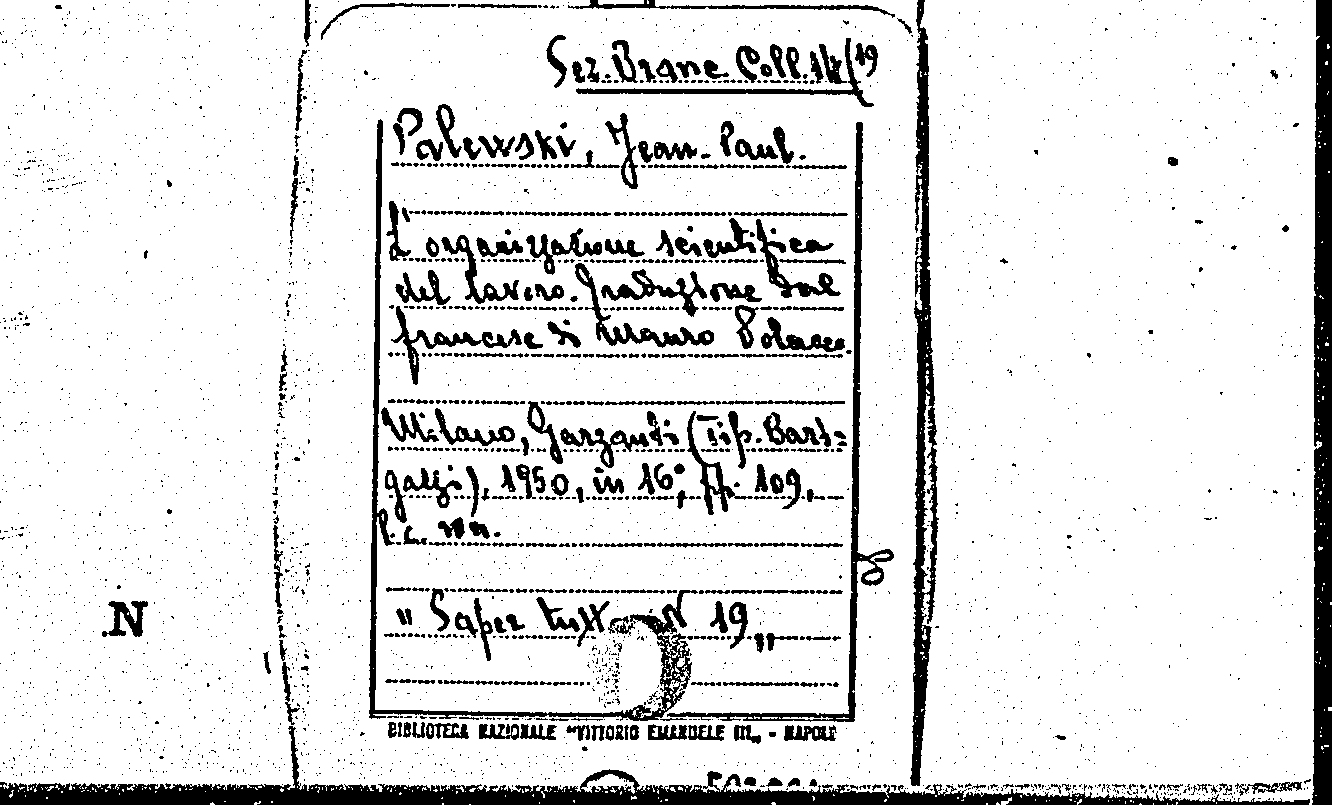 Sez. Branc. Coll. 14/19
Palewski, Jean-Paul.
L'organizzazione scientifica
del lavoro. Traduzione dal
francese di Mauro Polacco.
Milano, Garzanti (Tip. Bart=
galzi), 1950, in 16°, pp. 109,
"Saper tutto N 19"
N
BIBLIOTECA NAZIONALE "VITTORIO EMANUELE III" - NAPOLI